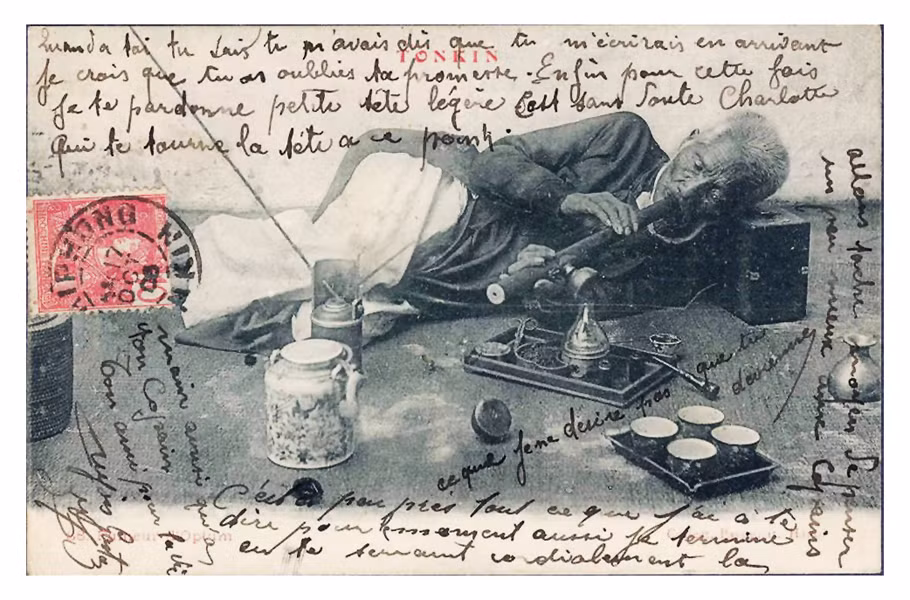 Quand a toi tu sais tu m'avais dis que tu m'écrirais en arrivant
TONKIN
je crois que tu as oubliés ta promesse. Enfin pour cette fois
Je te pardonne petite tête légère C'est sans Doute Charlotte
qui te tourne la tête a ce point.
allons tacher de penser
un peu mieux a Copains
ce que je ne désire pas que tu
devienne
C'est a peu près tout ce que j'ai a te
dire pour le moment aussi je termine
en te serrant cordialement la
main ainsi qu'a
ton Copain
Ton ami pour la vie
HAIPHONG
TONKIN